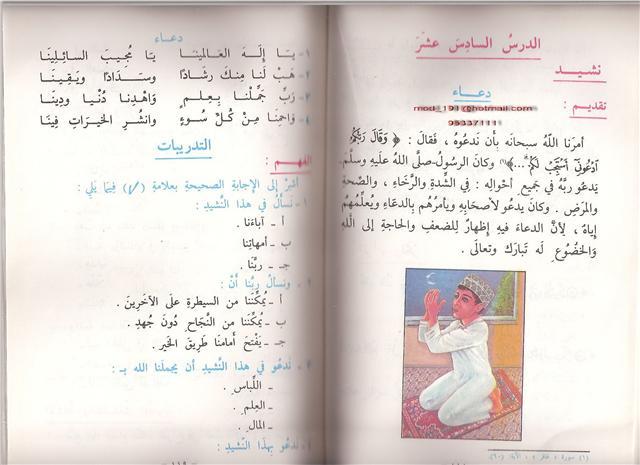 الدرسُ السادسَ عشَرَ
نشيد
دعـــاء
تقديم :
mod_191@hotmail.com
أمرَنا اللهُ سبحانَه بأن نَدعُوَه ، فقالَ : ﴿ وَقَالَ رَبُّكُمُ
ادْعُونِي أَسْتَجِبْ لَكُمْ ...﴾(١) وكانَ الرسُولُ-صلَّى اللهُ عليهِ وسلَّم-
يَدعُو ربَّهُ في جَميعِ أحوالِه : في الشِّدةِ والرَّخاءِ ، والصّحةِ
والمرَضِ . وكانَ يدعُو لأصحابِهِ ويأمرُهُم بِالدعَاءِ ويُعلِّمُهُم
إياهُ ، لأنَّ الدعاءَ فيهِ إظهارٌ للضعفِ والحاجةِ إلى اللهِ
وَالخُضُوعِ لَه تَبارَكَ وتعالَى .
(١) سورة : غافر ، الآية: (٦٠).
دعـــاء
١ - يَـا إلَـهَ العَـالَميْنَـا يَـا مُجِيـبَ السَـائِلِينَـا
٢ - هَـبْ لَنا مِنكَ رشَادًا وسـدَادًا ويَـقِينَـا
٣ - رَبِّ جَمِّلْنـا بِعِلمٍ وَاهْدِنـا دُنْـيا ودِينَـا
٤ - وَاحمِنَا مِنْ كُلِّ سُوءٍ وانشُرِ الخيرَاتِ فِينَا
التدريبات
الفهم :
أشرْ إلى الإجابةِ الصحيحةِ بعلامةِ (✓) فِيمَا يَلِي :
١ - نَسألُ في هذا النَّشيدِ :
أ - آباءَنا .
ب - أمهاتِنا .
جـ - ربَّنا .
٢ - ونسألُ ربَّنا أنْ :
أ - يُمكِّنَنا من السيطرةِ علَى الآخَرينَ .
ب - يُمكِّنَنا من النَّجاحِ دُونَ جُهدٍ .
جـ - يَفْتحَ أمامَنا طَرِيقَ الخيرِ .
٣ - نَدعُو في هَذا النَّشيدِ أن يجملَنا الله بـ :
ـ اللِّباسِ .
ـ العِلمِ .
ـ المالِ .
نَدعُو بِهذَا النَّشيدِ :